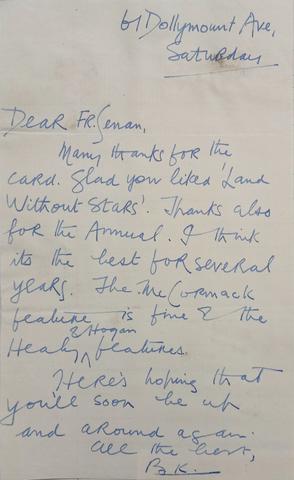 61 Dollymount Ave,
Saturday
Dear Fr. Senan,
Many thanks for the
card. Glad you liked 'Land
Without Stars'. Thanks also
for the Annual. I think
its the best for several
years. The McCormack
feature is fine & the
& Hogan
Healy ^ features.
Here's hoping that
you'll soon be up
and around again.
All the best,
B.K.